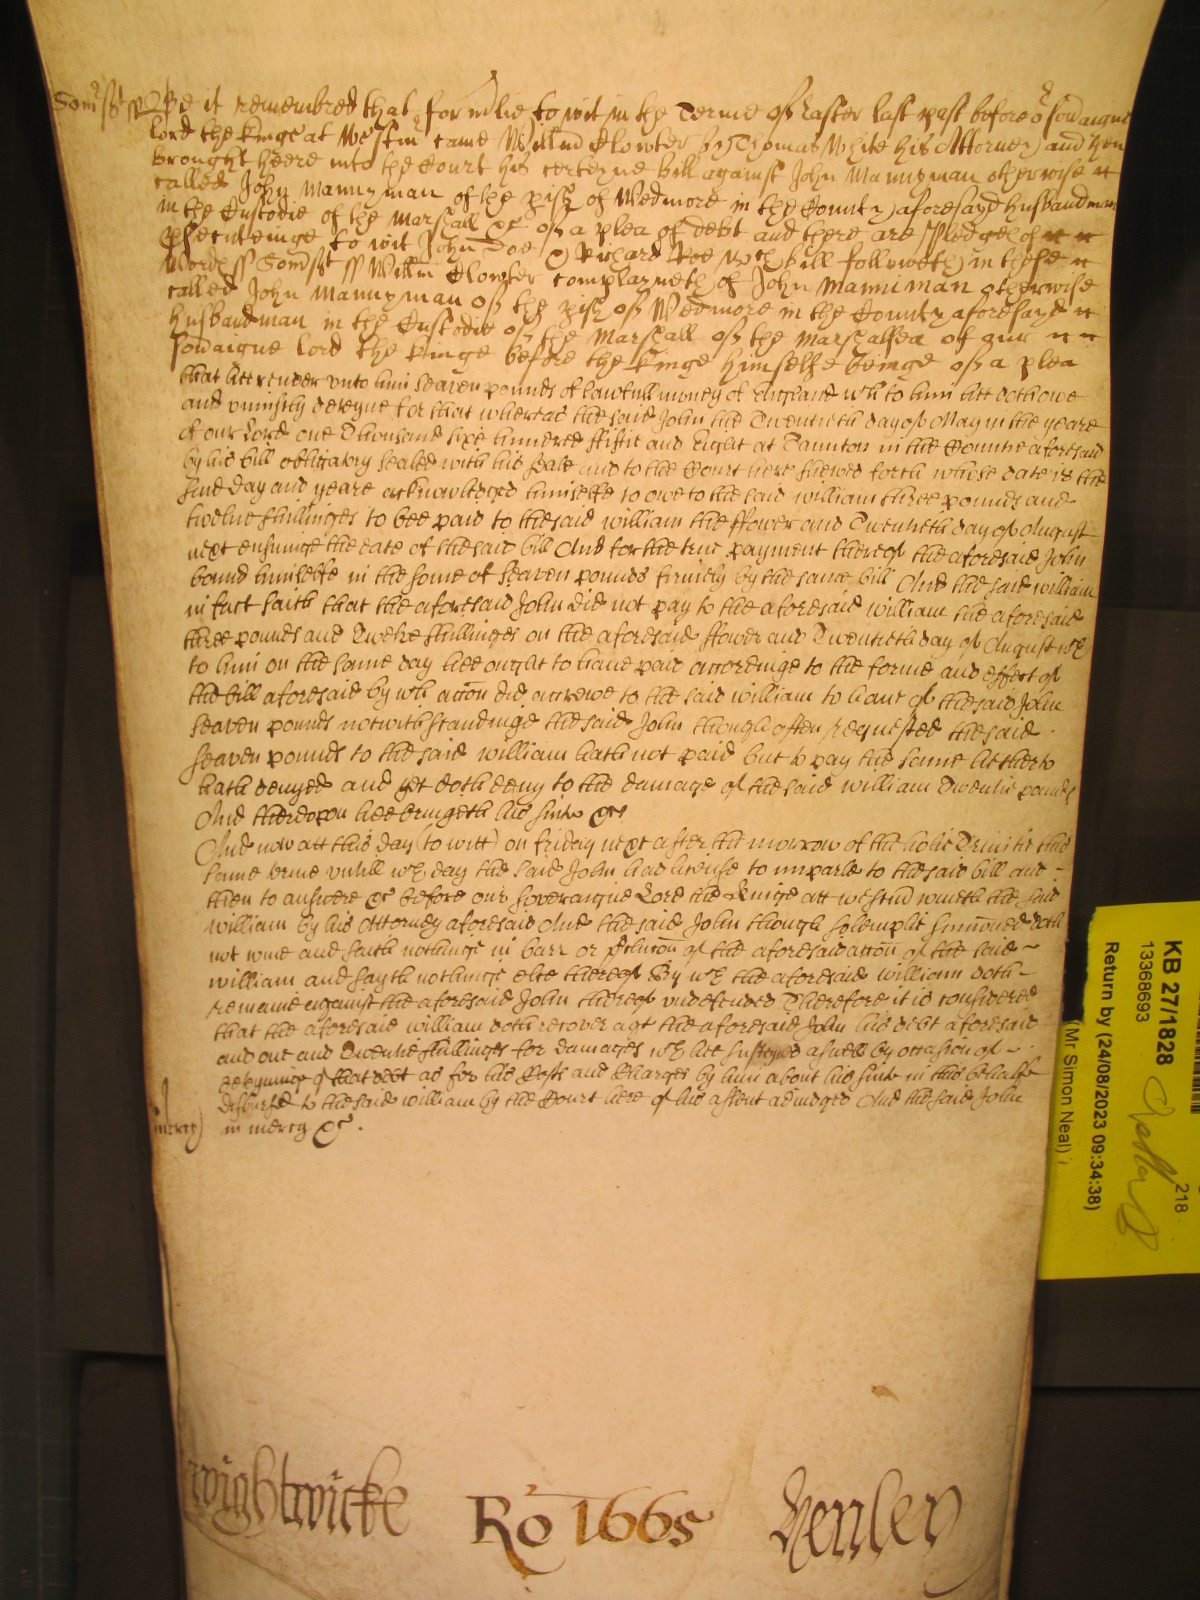 Som̃sꝭt ss Be it remembred that formlie to wit in the Terme of Easter last past before oʳ sovaigne
lord the Kinge at Westm̃ came Willm̃ Clowter by Thomas White his Attorney and then
brought heere into the Court his certeyne bill against John Mannyman otherwise
called John Mannyman of the pish of Wedmore in the County aforesayd husbandman
in the Custodie of the Marshall &c of a plea of debt and there are pledges of
psecuteinge to wit John Doe & Richard Roe wch bill followeth in these
words ss Som̃sꝭt ss Willm̃ Clowter complayneth of John Manniman otherwise
called John Mannyman of the pish of Wedmore in the County aforesayd
husbandman in the Custodie of the Marshall of the Marshalsea of our
sovaigne lord the Kinge before the Kinge himselfe beinge of a plea
that hee render unto him seaven pounds of lawfull money of England wch to him hee doth owe
and uniustly deteyne for that whereas the said John the Twentieth day of May in the yeare
of our Lord one Thousand sixe hundred fiftie and Eight at Taunton in the Countie aforesaid
by his bill obligatory sealed with his Seale and to the Court here shewed forth whose date is the
same day and yeare acknowledged himselfe to owe to the said william three pounds and
twelve shillinges to bee paid to the said william the ffower and Twentieth day of August
next ensuinge the date of the said bill And for the true payment thereof the aforesaid John
bound himselfe in the some of seaven pounds firmely by the same bill And the said william
in fact saith that the aforesaid John did not pay to the aforesaid william the aforesaid
three pounds and Twelve shillinges on the aforesaid ffower and Twentieth day of August wch
to him on the same day hee ought to have paid accordinge to the forme and effect of
the bill aforesaid by wch accon did accrewe to the said william to have of the said John
seaven pounds notwithstandinge the said John though often requested the said
seaven pounds to the said william hath not paid but to pay the same hitherto
hath denyed and yet doth deny to the damage of the said william Twentie pounds
And thereupon hee bringeth his suite &c
And now att this day (to witt) on friday next after the morrow of the holie Trinitie this
same terme untill wch day the said John had license to imparle to the said bill and
then to answere &c before our soveraigne Lord the Kinge att westm̃ cometh the said
william by his Attorney aforesaid And the said John though solemplie sumoned doth
not come and saith nothinge in barr or pclucon of the aforesaid accon of the said
william and sayth nothinge else thereof By wch the aforesaid william doth
remaine against the aforesaid John thereof undefended Therefore it is considered
that the aforesaid william doth recover agt the aforesaid John his debt aforesaid
and one and Twentie shillinges for damages wch hee susteyned aswell by occasion of
deteyninge of that debt as for his Costs and Charges by him about his suite in this behalfe
disbursed to the said william by the Court here of his assent adiudged And the said John
mercy) in mercy &c.
Wightwicke Ro 1665 Henley
KB 27/1828
13368693
218
Return by (24/08/2023 09:34:38)
(Mr Simon Neal)